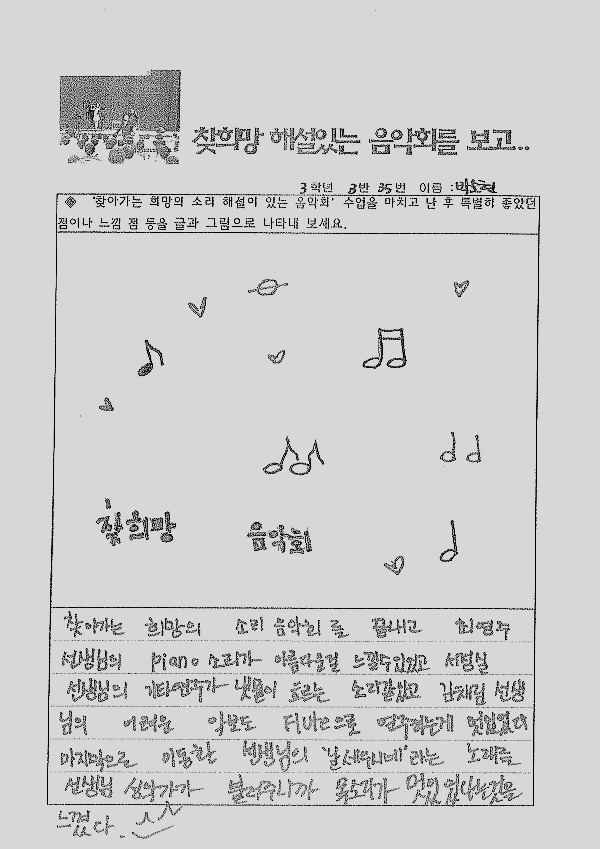 찾희망 해설있는 음악회를 보고...
3학년 3반 35번 이름 :
◈ '찾아가는 희망의 소리 해설이 있는 음악회' 수업을 마치고 난 후 특별히 좋았던
점이나 느낌 점 등을 글과 그림으로 나타내 보세요.
찾희망 음악회
찾아가는 희망의 소리 음악회를 끝내고 최영주
선생님의 piano 소리가 아름다운걸 느낄수있었고 서정실
선생님의 기타연주가 냇물이 흐르는 소리같았고 김채림 선생
님의 어려운 악보도 연주하는게 멋있었다
마지막으로 이동환 선생님의 라는 노래를
선생님 성악가가 불러주니까 목소리가 멋있었다는것을
느꼈다.